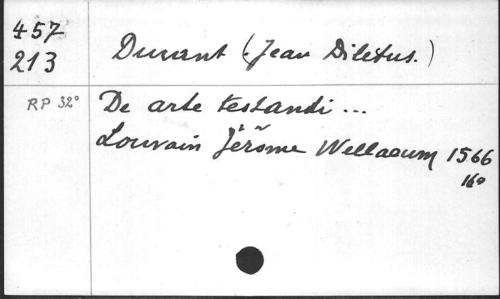 457
213
Durant (Jean Diletus.)
RP 32°
De arte testandi ...
Louvain Jérôme Wellaeum 1566
16°